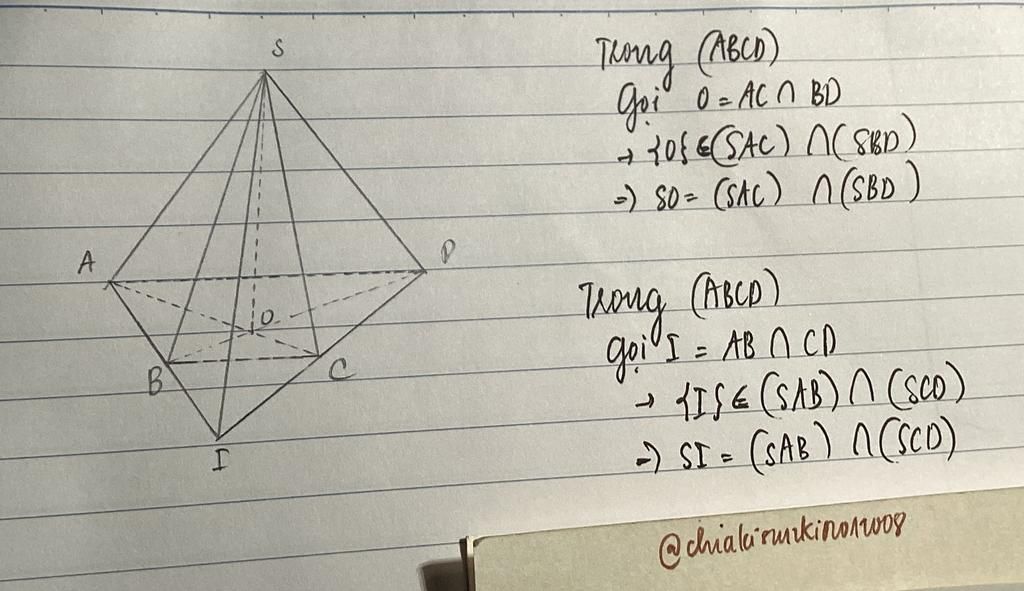 S
A
D
O
B
C
I
Trong (ABCD)
Gọi O = AC ∩ BD
→ {O} ∈ (SAC) ∩ (SBD)
=> SO = (SAC) ∩ (SBD)
Trong (ABCD)
gọi I = AB ∩ CD
→ {I} ∈ (SAB) ∩ (SCD)
=> SI = (SAB) ∩ (SCD)